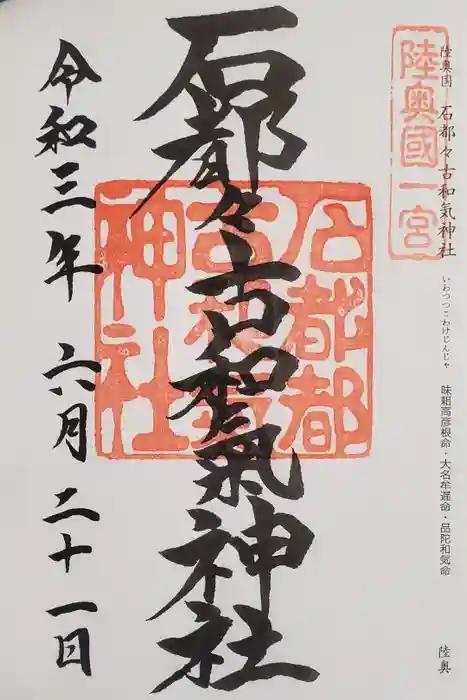 陸奥国　石都々古和気神社　いわつつこわけじんじゃ　味耜高彦根命・大名牟遅命・品陀和気命　陸奥
陸奥國一宮
石都々古和氣神社
石都都
古和氣
神社
令和三年　六月二十一日